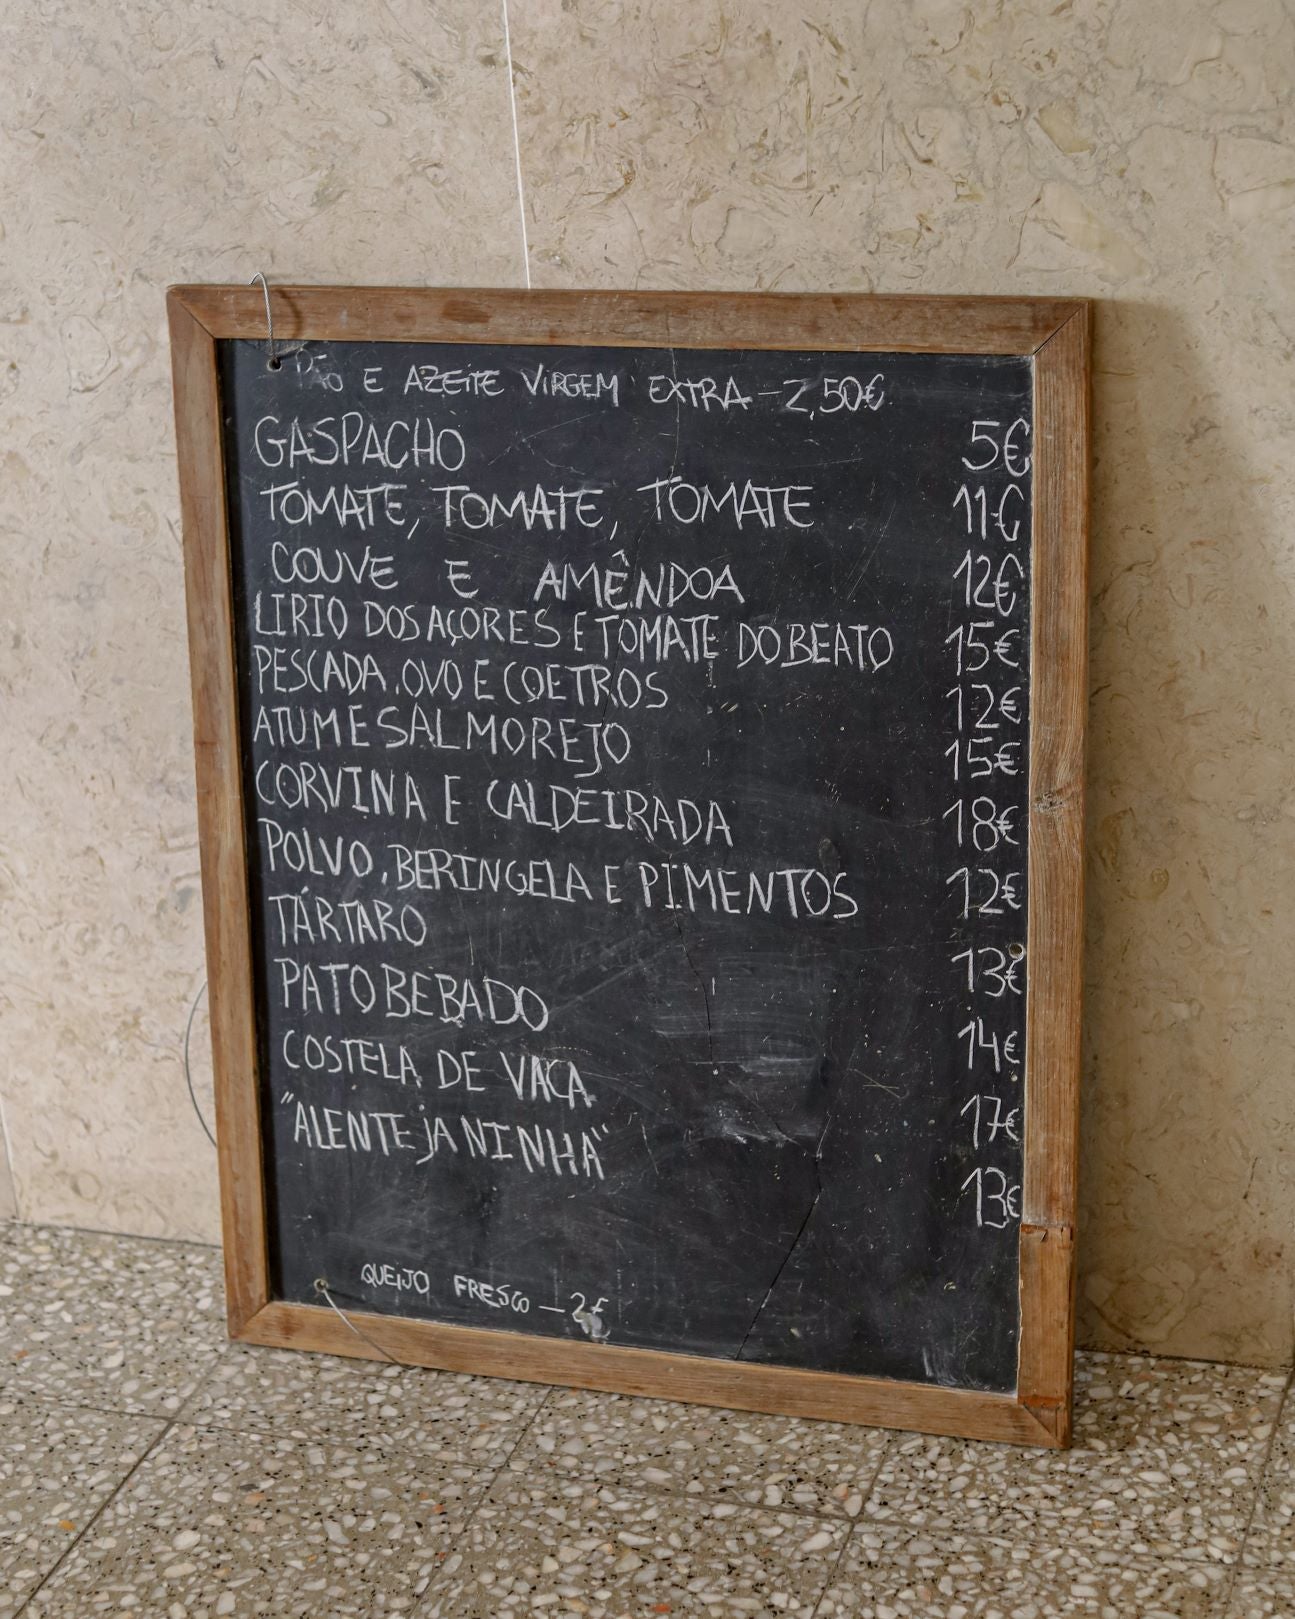 Pão E AZEITE VIRGEM EXTRA - 2,50€
GASPACHO 5€
TOMATE, TOMATE, TOMATE 11€
COUVE E AMÊNDOA 12€
LIRIO DOS AÇORES E TOMATE DO BEATO 15€
PESCADA, OVO E COETROS 12€
ATUM E SALMOREJO 15€
CORVINA E CALDEIRADA 18€
POLVO, BERINGELA E PIMENTOS 12€
TÁRTARO 13€
PATO BEBADO 14€
COSTELA DE VACA 17€
"ALENTEJANINHA" 13€
QUEIJO FRESCO - 2€